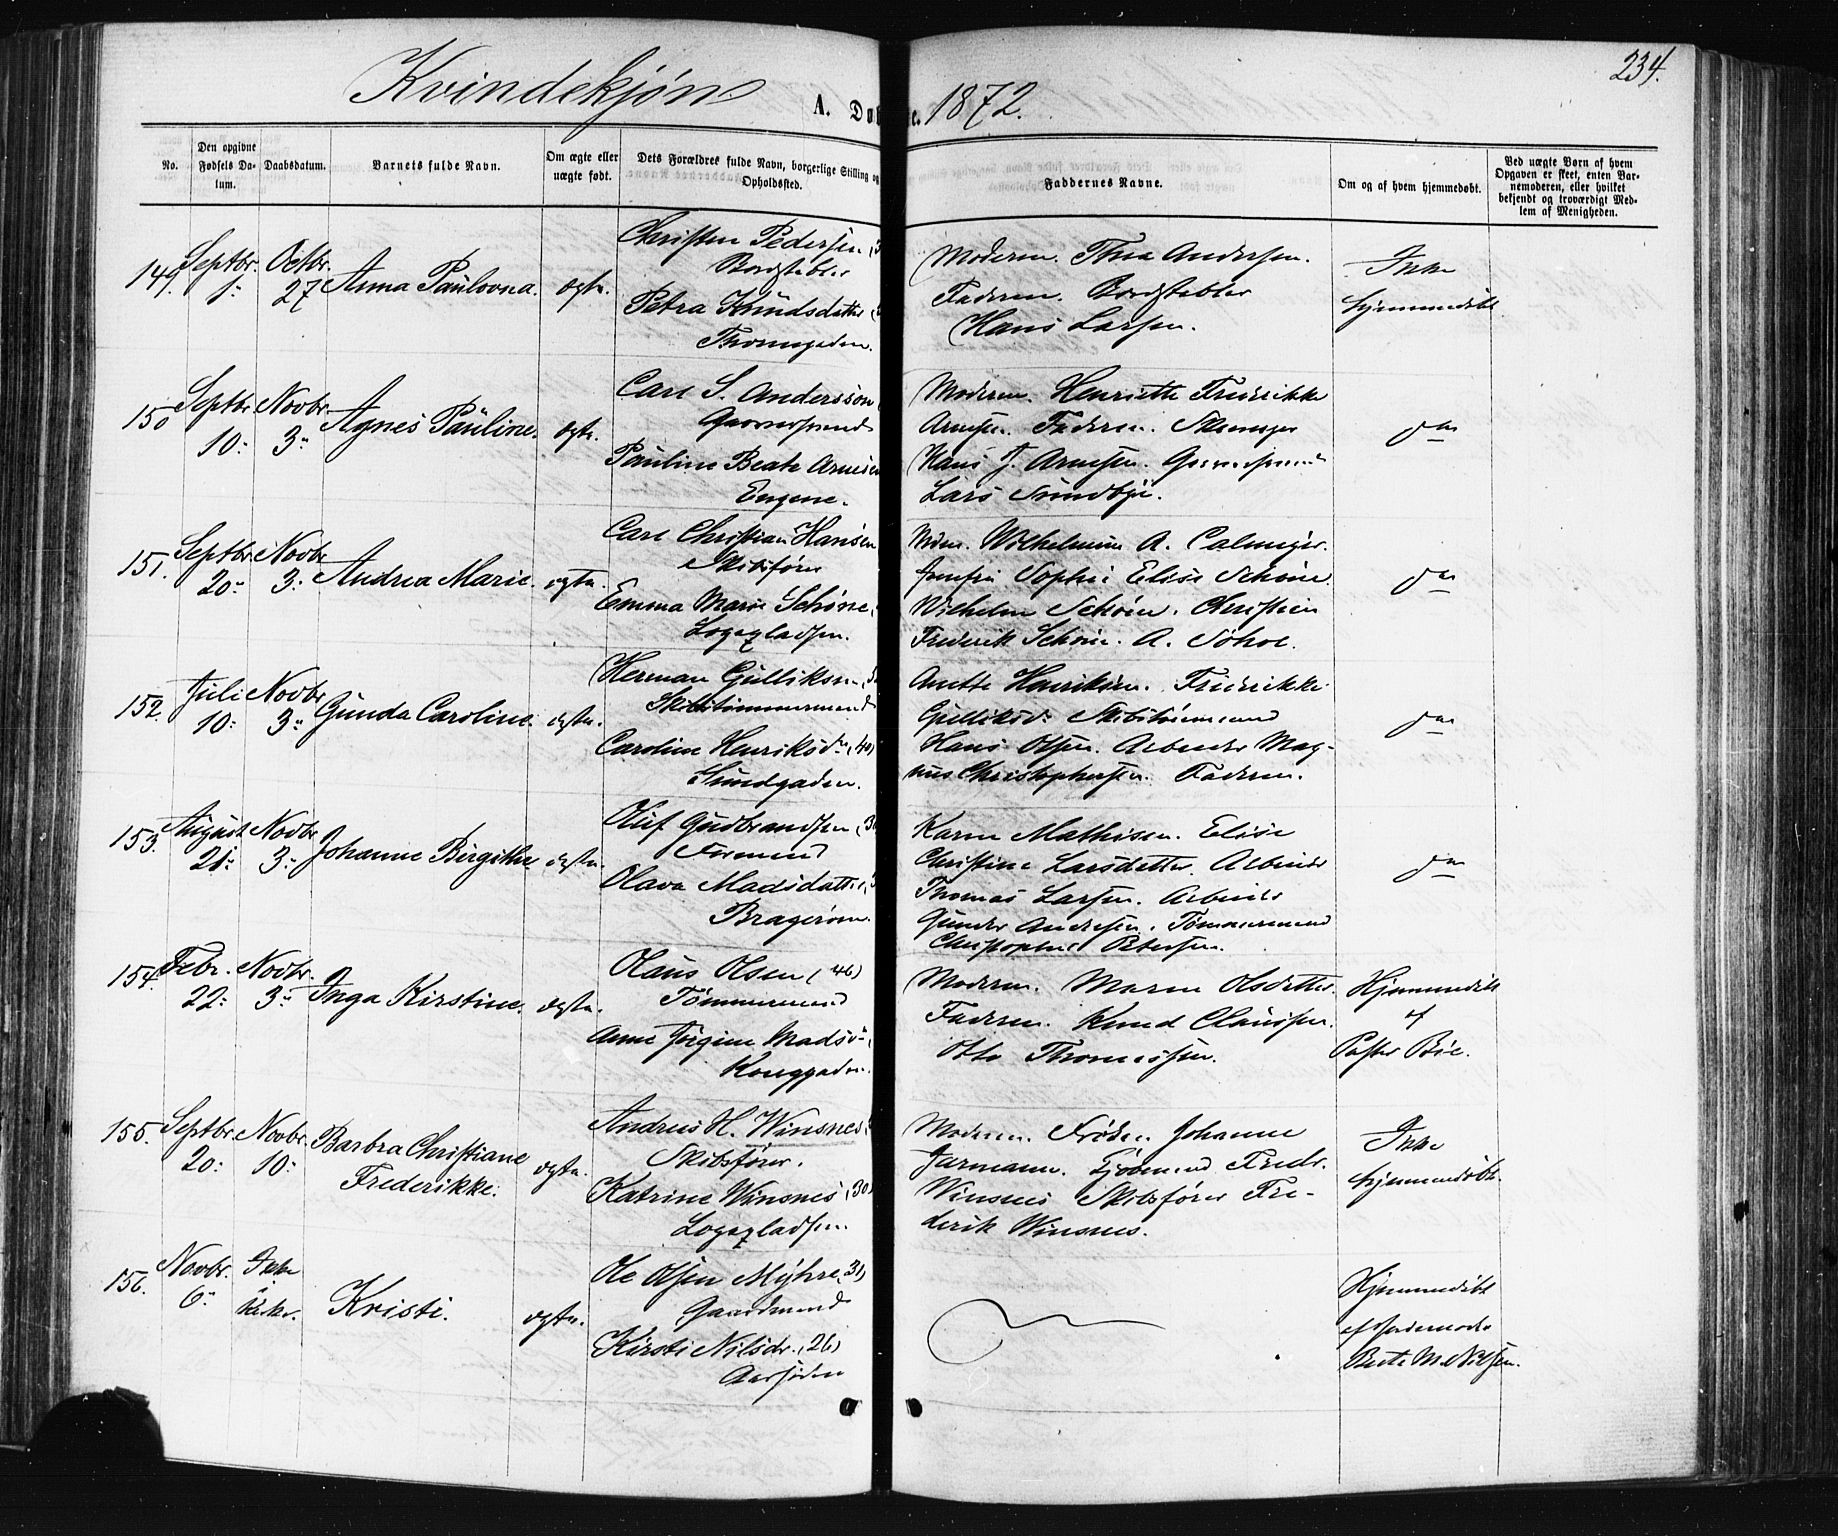 234.
Kvindekjøn. A. Dø e. 1872.
No.
Den opgivne Fødsels Datum.
Daabsdatum.
Barnets fulde Navn.
Om ægte eller uægte født.
Dets Forældres fulde Navn, borgerlige Stilling og Opholdssted.
Faddernes Navne.
Om og af hvem hjemmedøbt.
Ved uægte Børn af hvem Opgaven er skeet, enten Barnemoderen, eller hvilket bekjendt og troværdigt Medlem af Menigheden.
149. Septbr. Octbr. 27 Anna Paulovna. ægte.
Christen Pedersen
Bordstabler
Petra Knudsdatter
Moderen. Thea Andersen.
Faderen. Bordstabler
Hans Larsen.
Ikke
hjemmedøbt
150 Septbr 10: Novbr. 3: Agnes Pauline. ægte.
Carl S. Andersson
Pauline Beate Arnesen
Engene.
Moderen. Henriette Frederikke
Arnesen. Faderen.
Hans J. Arnesen.
Lars Sundbye.
do
151. Septbr 20: Novbr 3: Andrea Marie. ægte.
Carl Christian Hansen
Skibsfører
Emma Marie Schøne
Jomfru Sophie Elise Schøne.
Wilhelm Schøne. Christian
Frederik Schøne. A.
do
152. Juli 10: Novbr 3: Gunda Caroline. ægte.
Herman Gulliksen
Skibstømmermand
Caroline Henriksd. (40)
Strandgaden.
Anette Henriksen. Frederikke
Gulliksd. Skibstømmermand
Hans Olsen. Arbeider Mag-
nus Christophersen. Faderen.
do
153. August 21: Novbr 3: Johanne Birgithe ægte.
Oluf Gudbrandsen
Formand
Olava Madsdatter
Bragerøen.
Karen Mathisen. Elise
Christine Larsdatter. Arbeider
Thomas Larsen. Arbeider
Gunder Andersen. Tømmermand
Christopher Petersen.
do
154. Febr. 22: Novbr. 3: Inga Kirstine. ægte.
Olaus Olsen (46)
Tømmermand
Anne Jørgine Madsd.
Konggaden.
Moderen. Maren Olsdatter.
Faderen. Knud Claussen.
Otto Thomassen.
Hjemmedøbt
af
Pastor Bie.
155. Septbr. 20: Novbr. 10: Barbra Christiane
Frederikke. ægte.
Andreas H. Winsnes
Skibsfører.
Katrine Winsnes (30)
Moderen. Frøken Johanne
Jarmann. Fredr.
Winsnes Skibsfører Fre-
derik Winsnes.
Ikke
hjemmedøbt.
156. Novbr. 6: Ikke
i
Kirke. Kristi. ægte.
Ole Olsen Myhre (31)
Gaardmand
Kirsti Nilsdr. (26)
Hjemmedøbt
af Jordemoder
Berte M. Nilsen.